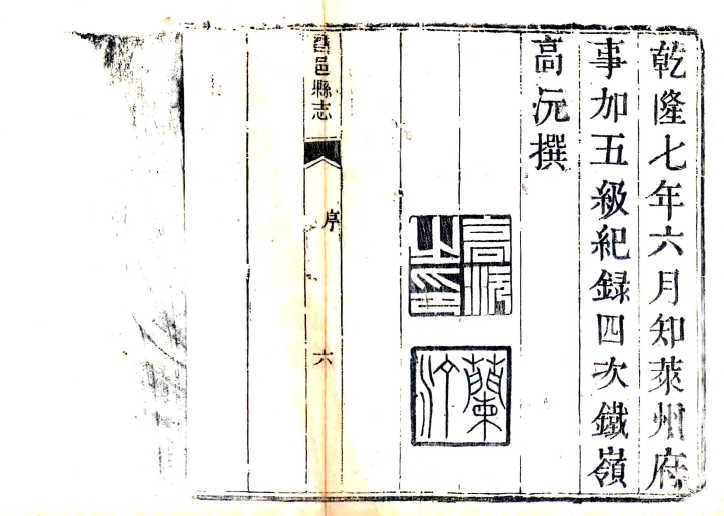 乾隆七年六月知萊州府
事加五級紀録四次鐵嶺
高沅撰
高沅之印
蘭
昌邑縣志
序
六